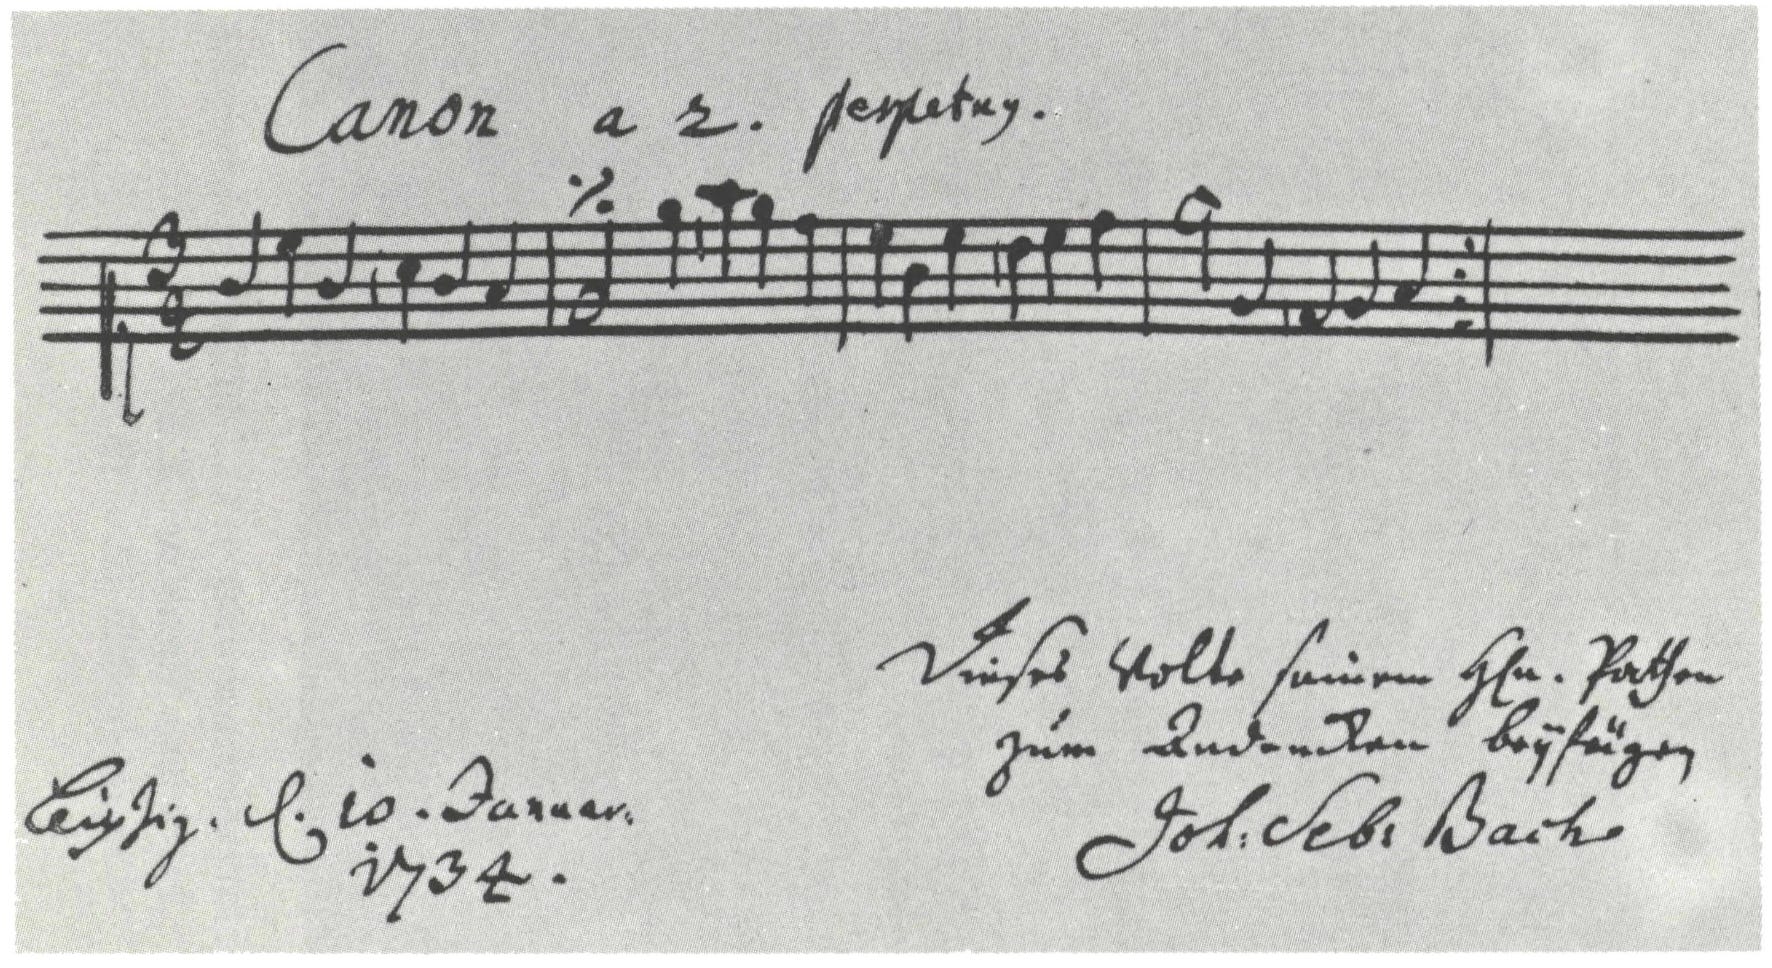 Canon a 2. perpetuꝰ.
Dieses Wolte seinem Hln. Pathen
zum Andencken beyfügen
Joh: Seb: Bach
Leipzig. d. 10. Januar.
1734.